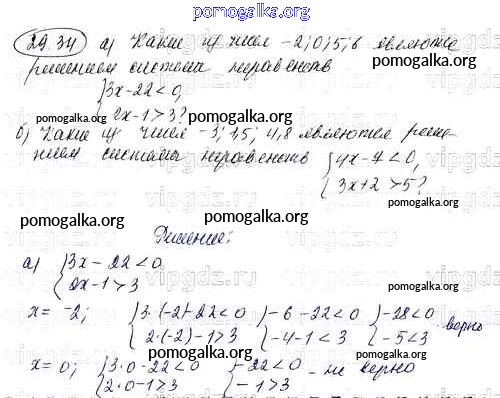 pomogalka.org
29.34 а) Какие из чисел -2; 0; 5; 6 являются
решением системы неравенств
{3x-22<0,
2x-1>3?
pomogalka.org pomogalka.org
б) Какие из чисел -3; 1,5; 4,8 являются реше-
нием системы неравенств {4x-7<0,
3x+2>5?
pomogalka.org pomogalka.org
pomogalka.org
Решение:
pomogalka.org
а) {3x-22<0
2x-1>3
pomogalka.org
x= -2; {3·(-2)-22<0 {-6-22<0 {-28<0
2·(-2)-1>3 -4-1<3 -5<3 - верно
pomogalka.org pomogalka.org
x= 0; {3·0-22<0 {-22<0
2·0-1>3 -1>3 - не верно
pomogalka.org pomogalka.org